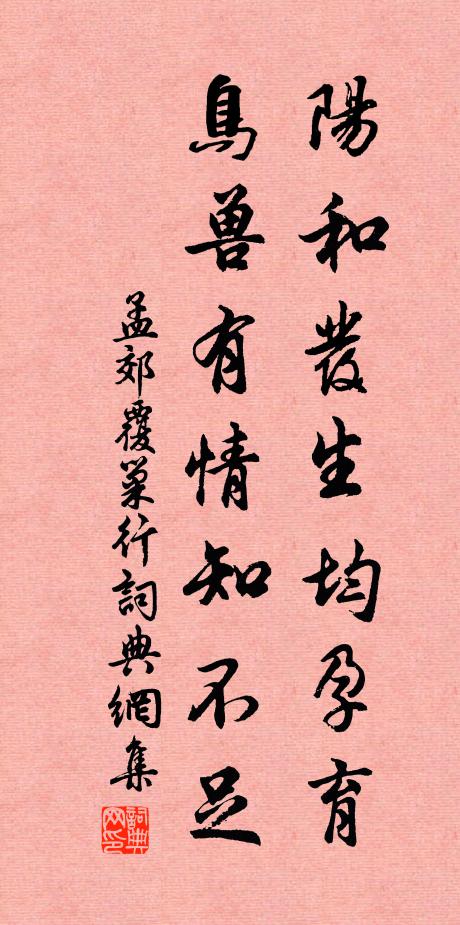 陽和發生均孕育
鳥兽有情知不足
孟郊覆巢行詞典網集
詞典网印